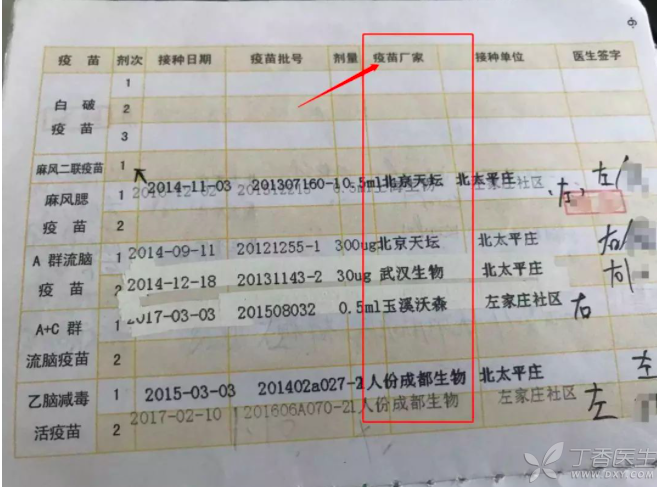 疫 苗 剂次 接种日期 疫苗批号 剂量 疫苗厂家 接种单位 医生签字
白 破 1
2
疫 苗 3
麻风二联疫苗 1 2014-11-03 201307160-1 0.5ml 北京天坛 北太平庄 左
麻风腮 1 左家庄社区 左
疫 苗 2
A 群流脑 1 2014-09-11 20121255-1 300ug 北京天坛 北太平庄 右
疫 苗 2 2014-12-18 20131143-2 30ug 武汉生物 北太平庄 右
A+C 群 1 2017-03-03 201508032 0.5ml 玉溪沃森 左家庄社区 右
流脑疫苗 2
乙脑减毒 1 2015-03-03 201402a027-2 1人份 成都生物 北太平庄 左
活疫苗 2 2017-02-10 201606A070-2 1人份 成都生物 左家庄社区 左
丁香医生